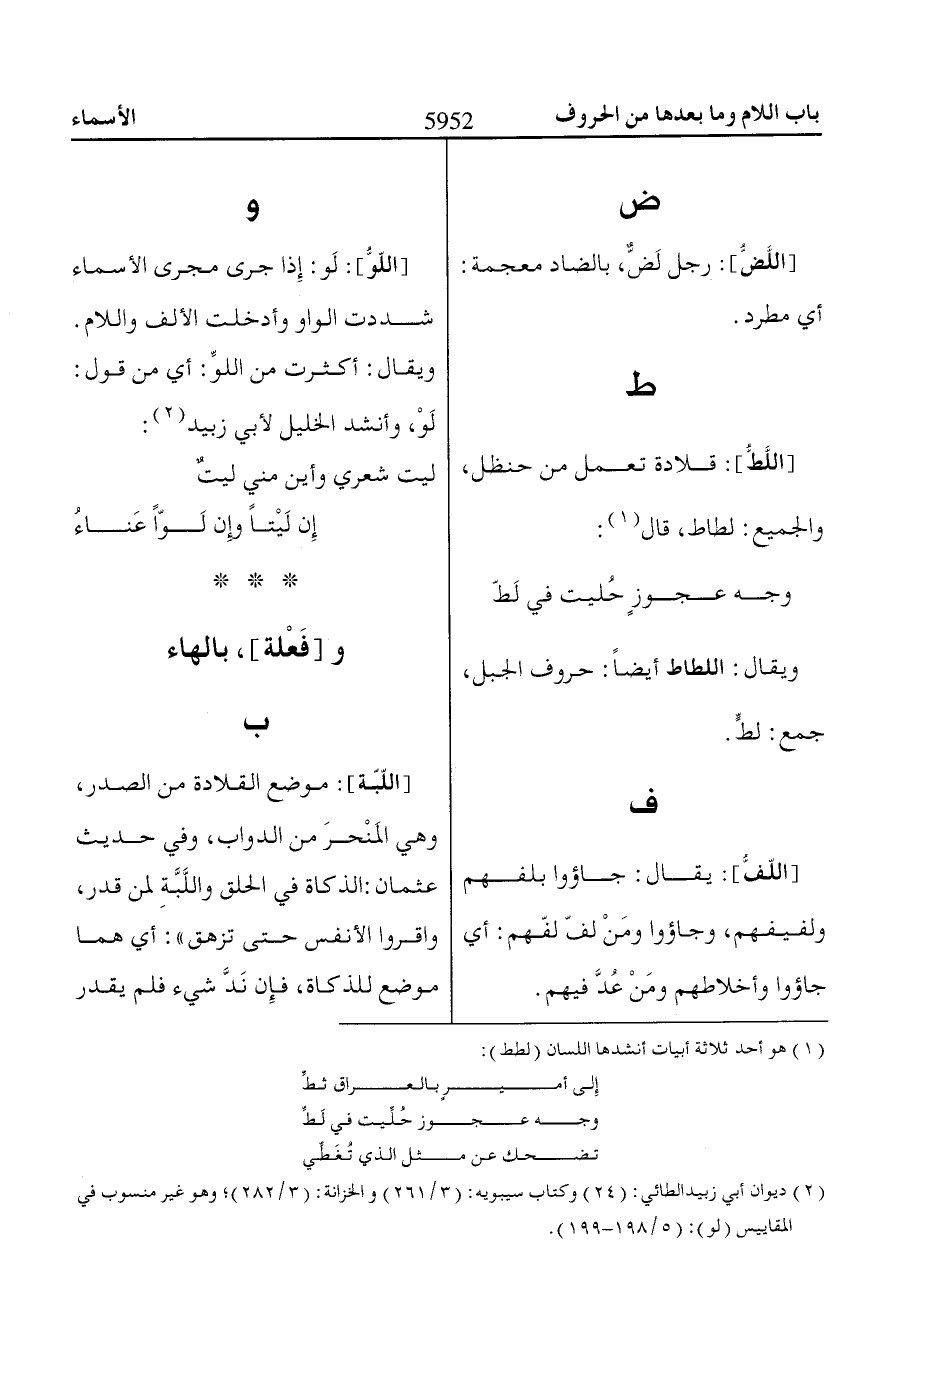 باب اللام وما بعدها من الحروف
5952
الأسماء
ض
[اللَّضُّ]: رجل لَضٌّ، بالضاد معجمة:
أي مطرد.
ط
[اللَّطُّ]: قلادة تعمل من حنظل،
والجميع: لطاط، قال(١):
وجه عجوزٍ حُليت في لَطّ
ويقال: اللطاط أيضاً: حروف الجبل،
جمع: لطٍّ.
ف
[اللّفُّ]: يقال: جاؤوا بلفهم
ولفيفهم، وجاؤوا ومَنْ لفّ لفّهم: أي
جاؤوا وأخلاطهم ومَنْ عُدَّ فيهم.
و
[اللّوُّ]: لَو: إذا جرى مجرى الأسماء
شددت الواو وأدخلت الألف واللام.
ويقال: أكثرت من اللوِّ: أي من قول:
لَوْ، وأنشد الخليل لأبي زبيد(٢):
ليت شعري وأين مني ليتٌ
إن لَيْتاً وإن لَوّاً عَناءُ
* * *
و [فَعْلة]، بالهاء
ب
[اللّبّة]: موضع القلادة من الصدر،
وهي المَنْحرَ من الدواب، وفي حديث
عثمان: الذكاة في الحلق واللَّبَّةِ لمن قدر،
واقروا الأنفس حتى تزهق»: أي هما
موضع للذكاة، فإن نَدَّ شيء فلم يقدر
(١) هو أحد ثلاثة أبيات أنشدها اللسان (لطط):
إلى أميرٍ بالعراق ثطِّ
وجه عجوز حُلِّيت في لَطِّ
تضحك عن مثل الذي تُغَطِّي
(٢) ديوان أبي زبيد الطائي: (٢٤) وكتاب سيبويه: (٢٦١/٣) و الخزانة: (٢٨٢/٣)؛ وهو غير منسوب في
المقاييس (لو): (١٩٨/٥–١٩٩).